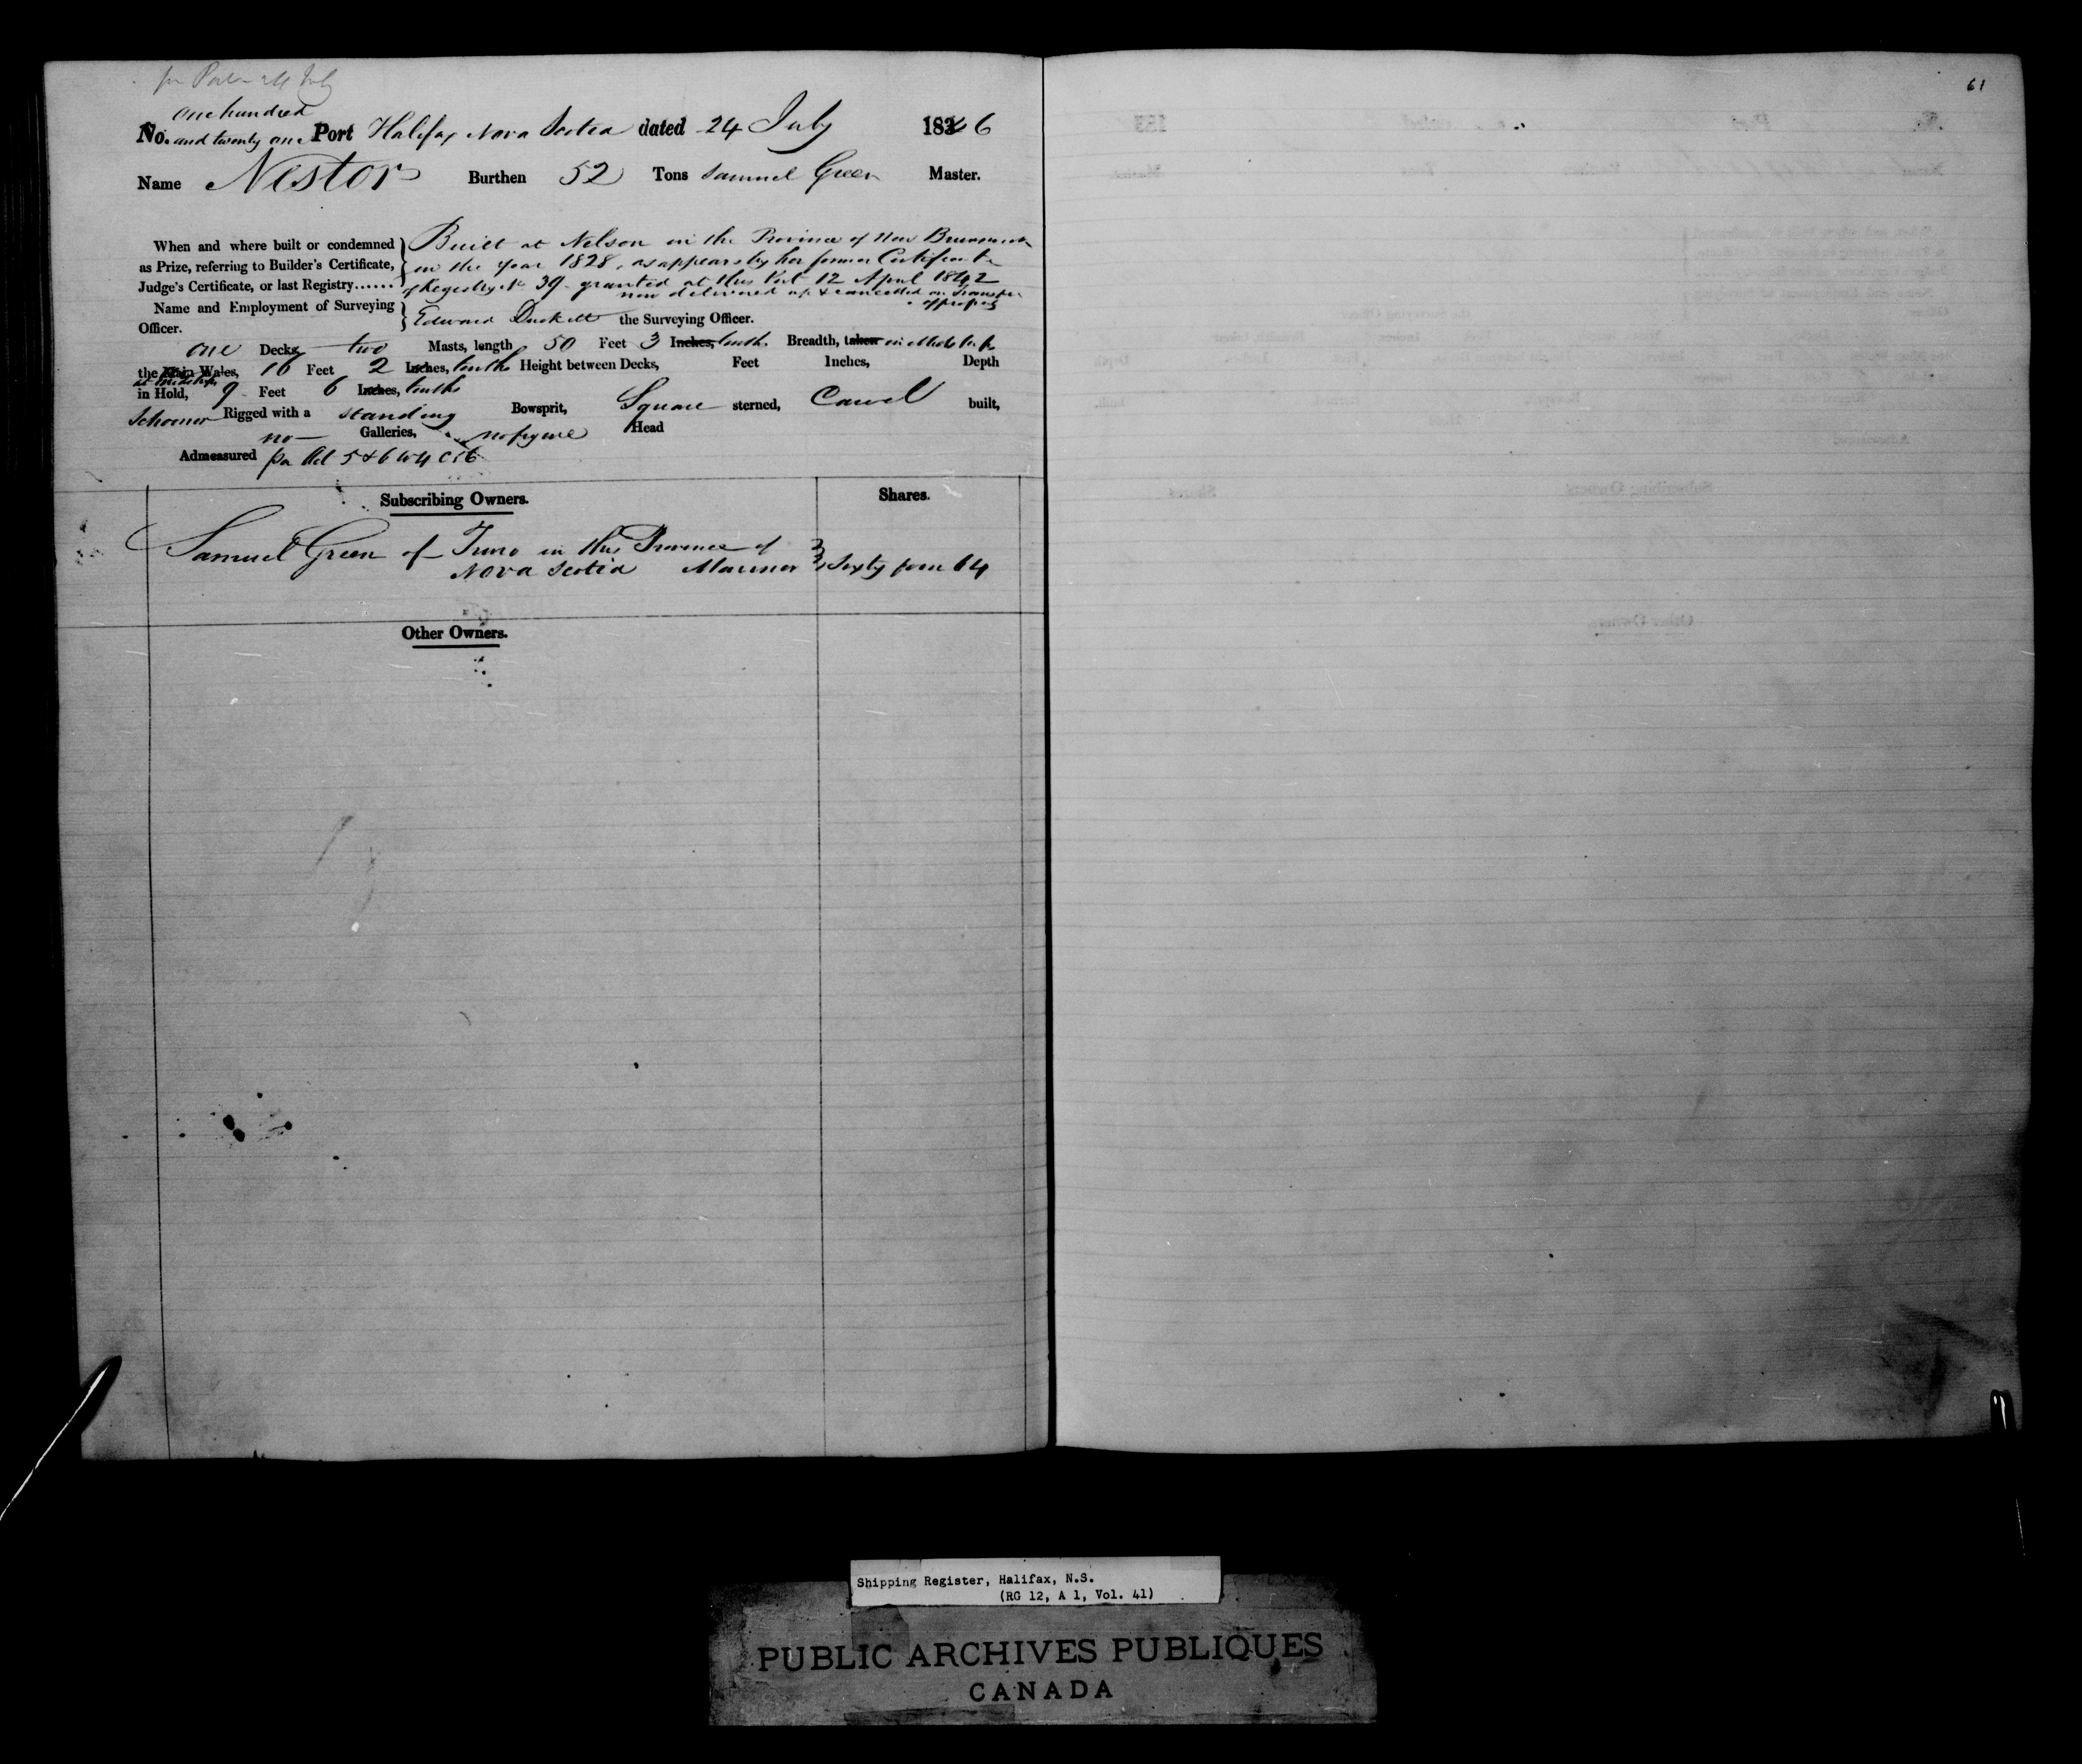 61
one hundred
No. and twenty one Port Halifax Nova Scotia dated 24 July 1846
Name Nestor Burthen 52 Tons Samuel Green Master.
When and where built or condemned as Prize, referring to Builder's Certificate, Judge's Certificate, or last Registry......
Built at Nelson in the Province of New Brunswick
in the year 1828, as appears by her former Certificate
of Registry No 39 granted at this Port 12 April 1842
now delivered up & cancelled on transfer
of property
Name and Employment of Surveying Officer.
Edward Duckett the Surveying Officer.
one Decks, two Masts, length 50 Feet 3 Inches, tenths Breadth, taken in Midships
the Main Wales, 16 Feet 2 Inches, tenths Height between Decks, Feet Inches, Depth
at Midships
in Hold, 9 Feet 6 Inches, tenths
Schooner Rigged with a standing Bowsprit, Square sterned, Carvel built,
no Galleries, no figure Head
Admeasured per Act 5 & 6 W 4 C 56
Subscribing Owners. Shares.
Samuel Green of Truro in this Province of
Nova Scotia Mariner Sixty four 64
Other Owners.
Shipping Register, Halifax, N.S.
(RG 12, A 1, Vol. 41)
PUBLIC ARCHIVES PUBLIQUES
CANADA